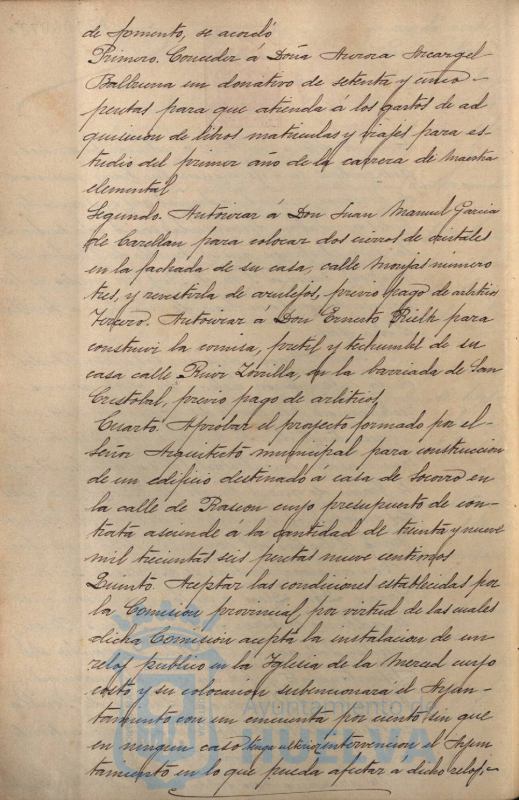 de fomento, se acordó
Primero. Conceder á Doña Aurora Arcangel
Balbuena un donativo de setenta y cinco
pesetas para que atienda á los gastos de ad
quisicion de libros matriculas y viajes para es-
tudio del primer año de la carrera de Maestra
elemental
Segundo. Autorizar á Don Juan Manuel Garcia
de para colocar dos cierros de cristales
en la fachada de su casa, calle Monjas número
tres, y revestirla de azulejos, previo pago de arbitrios
Tercero. Autorizar á Don Ernesto para
construir la cornisa, pretil y techumbre de su
casa calle Ruiz Zorrilla, en la barriada de San
Cristobal, previo pago de arbitrios
Cuarto. Aprobar el proyecto formado por el
Señor Arquitecto municipal para construccion
de un edificio destinado á casa de Socorro en
la calle de Rascon cuyo presupuesto de con-
trata asciende á la cantidad de treinta y nueve
mil trecientas seis pesetas nueve centimos
Quinto. Aceptar las condiciones establecidas por
la Comision provincial por virtud de las cuales
dicha Comision acepta la instalacion de un
reloj publico en la Iglesia de la Merced cuyo
costo y su colocacion subencionará el Ayun-
tamiento con un cincuenta por ciento sin que
en ningun caso tenga ulterior intervencion el Ayun
tamiento en lo que pueda afectar a dicho reloj,
Ayuntamiento de
HUELVA